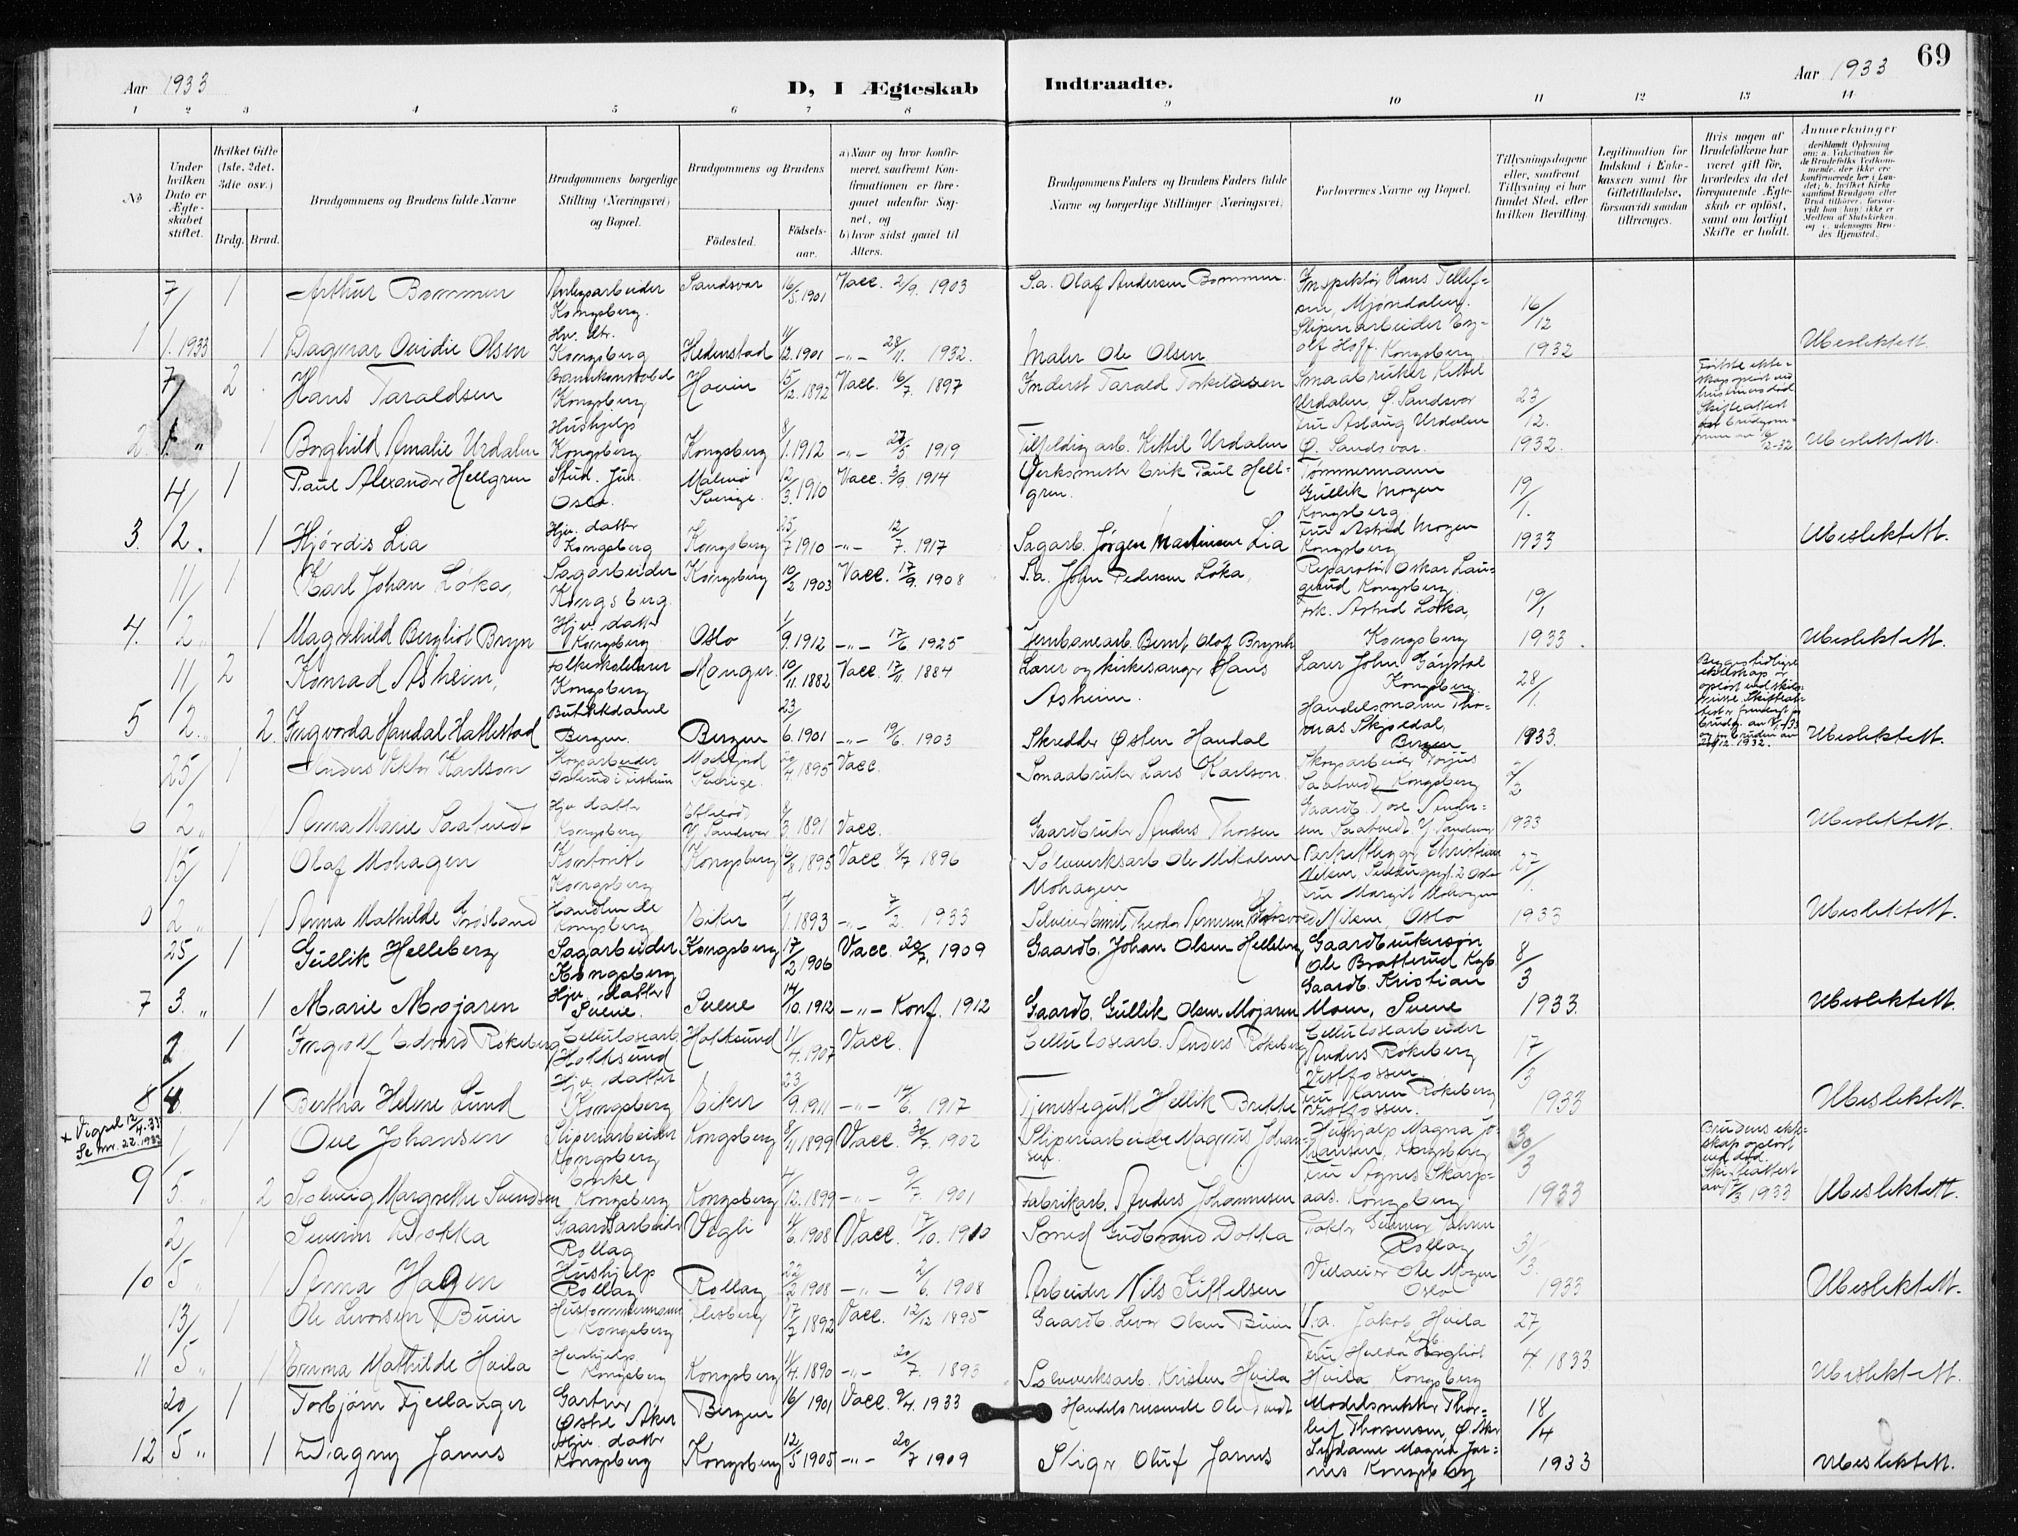 69
Aar 1933
D, I Ægteskab Indtraadte.
Aar 1933
1 2 3 4 5 6 7 8 9 10 11 12 13 14
No
Under hvilken Dato er Ægteskabet stiftet.
Hvilket Gifte (1ste, 2det, 3die osv.)
Brdg. Brud.
Brudgommens og Brudens fulde Navne
Brudgommens borgerlige Stilling (Næringsvei) og Bopæl.
Brudgommens og Brudens
Fødested.
Fødselsaar.
a) Naar og hvor konfirmeret, saafremt Konfirmationen er foregaaet udenfor Sognet, og
b) hvor sidst gaaet til Alters.
Brudgommens Faders og Brudens Faders fulde Navne og borgerlige Stillinger (Næringsvei)
Forlovernes Navne og Bopæl.
Tillysningsdagene eller, saafremt Tillysning ei har fundet Sted, efter hvilken Bevilling.
Legitimation for Indskud i Enkekassen samt for Giftetilladelse, forsaavidt saadan tiltrænges.
Hvis nogen af Brudefolkene har været gift før, hvorledes da det foregaaende Ægteskab er opløst, samt om lovligt Skifte er holdt.
Anmerkninger
7/ 1 Arthur Bommen Anlegsarbeider Kongsberg. Sandsvær 16/5 1901 Vacc. 2/9. 1903 S.a. Olaf Andersen Bommen Inspektør Hans Tellefsen, Mjøndalen. 16/12
1 1. 1933 1 Dagmar Ovidie Olsen Hv. dtr. Kongsberg Hedenstad 4/12. 1901 -"- 28/11. 1932. Maler Ole Olsen Sliperiarbeider olf Hoff. Kongsberg 1932 Ubeslektett.
7/ 2 Hans Taraldsen Kongsberg Hovin 15/12. 1892 Vacc. 16/7 1897 Inderst Tarald Torkildsen Smaabruker Kittel Urdalen, Ø. Sandsvær 23/12.
2. 1. " 1 Borghild Amalie Urdalen Hushjelp Kongsberg Kongsberg 8/1. 1912 -"- 20/5 1919 Tilfeldig arb. Kittel Urdalen Fru Aslaug Urdalen Ø. Sandsvær. 1932. Ubeslektett.
4/ 1 Paul Alexander Hellgren Stud. Jur. Oslo Malmø Sverige. 12/3. 1910 Vacc. 3/9. 1914 Verksmester Erik Paul Hellgren. Tømmermann Gullik Mogen Kongsberg 19/1.
3. 2. 1 Hjørdis Lia Hjv. datter Kongsberg Kongsberg 25/7 1910 -"- 12/7. 1917 Sagarb. Jørgen Martinsen Lia Fru Astrid Mogen Kongsberg 1933 Ubeslektett.
11/ 1 Karl Johan Løka, Sagarbeider Kongsberg. Kongsberg 10/2 1903 Vacc. 17/9. 1908 S.a. John Pedersen Løka, Reparatør Oskar Laugerud Kongsberg. 19/1
4. 2 " 1 Magnhild Bergliot Bryn Hjv. datter Kongsberg Oslo 1/9. 1912 -"- 17/6 1925 Jernbanearb. Bernt Olof Brynh Frk. Astrid Løka, Kongsberg 1933. Ubeslektett.
11/ 2 Konrad Asheim, Folkeskolelærer Kongsberg Manger. 10/11. 1882 Vacc. 17/11. 1884 Lærer og kirkesanger Hans Asheim. Lærer John Kongsberg. 28/1.
5 2. 2. Ingvorda Handal Hattestad Butikkdame Bergen. Bergen 23/6. 1901 -"- 19/6. 1903 Skredder Østen Handal Handelsmann Thomas Skjoldal, Bergen 1933. Ubeslektett.
25/ 1 Anders Viktor Karlson Skogsarbeider Sverige. 20/4. 1895 Vacc. Smaabruker Lars Karlson. Skogsarbeider Torjus Saatvedt, Kongsberg 2/3
6 2 " 1 Anna Marie Saatvedt Hjv. datter Kongsberg Y. Sandsvær 8/3 1891 Vacc. Gaardbruker Anders Thorsen Gaardb. Tore Andersen Saatvedt Y. Sandsvær 1933 Ubeslektett.
15/ 1 Olaf Mohagen Kontorist Kongsberg Kongsberg 9/8. 1895 Vacc. 8/7 1896 Sølvverksarb. Ole Mikalsen Mohagen Christian Nilsen, Oslo 27/1.
0 2 " 1 Anna Mathilde Grøsland Handlende Kongsberg Eiker 7/1. 1893 -"- 7/2 1933 Emil Theodor Arnesen Fru Margit Mohagen Nilsen, Oslo 1933 Ubeslektett.
25/ 1 Gullik Helleberg Sagarbeider Kongsberg Kongsberg 17/2 1906 Vacc. 20/7. 1909 Gaardb. Johan Olsen Helleberg Gaardbrukersøn Ole Bratterud Kgb. 8/3
7 3. " 1 Marie Mojaren Hjv. datter Svene. Svene 14/10. 1912 -"- Konf. 1912 Gaardb. Gullik Olsen Mojaren Gaardb. Kristian Moen, Svene 1933. Ubeslektett.
2/ 1 Ingvolf Edvard Røkeberg Cellulosearb. Hokksund Hokksund 11/4. 1907 Vacc. Cellulosearb. Anders Røkeberg Cellulosearbeider Anders Røkeberg Vestfossen. 17/3
8 4. 1 Bertha Helene Lund Hjv. datter Kongsberg Eiker 23/9. 1911 -"- 14/6. 1917 Tjenestegutt Hellik Brekke Fru Karen Røkeberg Vestfossen. 1933 Ubeslektett.
x Vigsel 12/4.33 Se nr. 22. 1933
1/ 1 Ove Johansen Sliperiarbeider Kongsberg Kongsberg 8/11 1899 Vacc. 30/7. 1902 Sliperiarbeider Magnus Johansen. Hushjelp Magna Johansen, Kongsberg 30/3 Brudens ekteskap opløst ved død. Skifteattest av 1933
9 5. " 2 Solveig Margrethe Svendsen Enke Kongsberg Kongsberg 4/12. 1899 -"- 9/7. 1901 Fabrikarb. Anders Johannesen Fru Agnes Skarpaas. Kongsberg 1933 Ubeslektett.
2/ 1 Severin Dokka Gaardsarbeider Rollag Vegli 4/6. 1908 Vacc. 17/10. 1910 Smed Gudbrand Dokka Rollag 31/3.
10 5 " 1 Anna Hagen Hushjelp Rollag Rollag 22/2 1908 -"- 2/6. 1908 Arbeider Nils Kittelsen Ole Mogen Oslo 1933 Ubeslektett.
13/ 1 Ole Levorsen Buin Hustømmermann Kongsberg Flesberg 17/7 1892 Vacc. 12/12 1895 Gaardb. Levor Olsen Buin V.a. Jakob Hvila Kgb. 27/
11 5 " 1 Emma Mathilde Hvila Hushjelp Kongsberg Kongsberg 11/4. 1890 -"- 20/7. 1893 Sølvverksarb. Kristen Hvila Fru Hulda Hvila Kongsberg 4. 1833 Ubeslektett.
20/ 1 Torbjørn Fjellanger Gartner Østre Aker Bergen 16/ 1901 Vacc. 9/4. 1933 Handelsreisende Ole Tvedt Modelsnekker Thorleif Thorsensen, Ø. Aker 18/4
12 5 " 1 Dagny Jarnes Hjv. datter Kongsberg Kongsberg 12/5 1905 -"- 20/7 1909 Stigr Oluf Jarnes Sydame Magna Jarnes Kongsberg 1933 Ubeslektett.